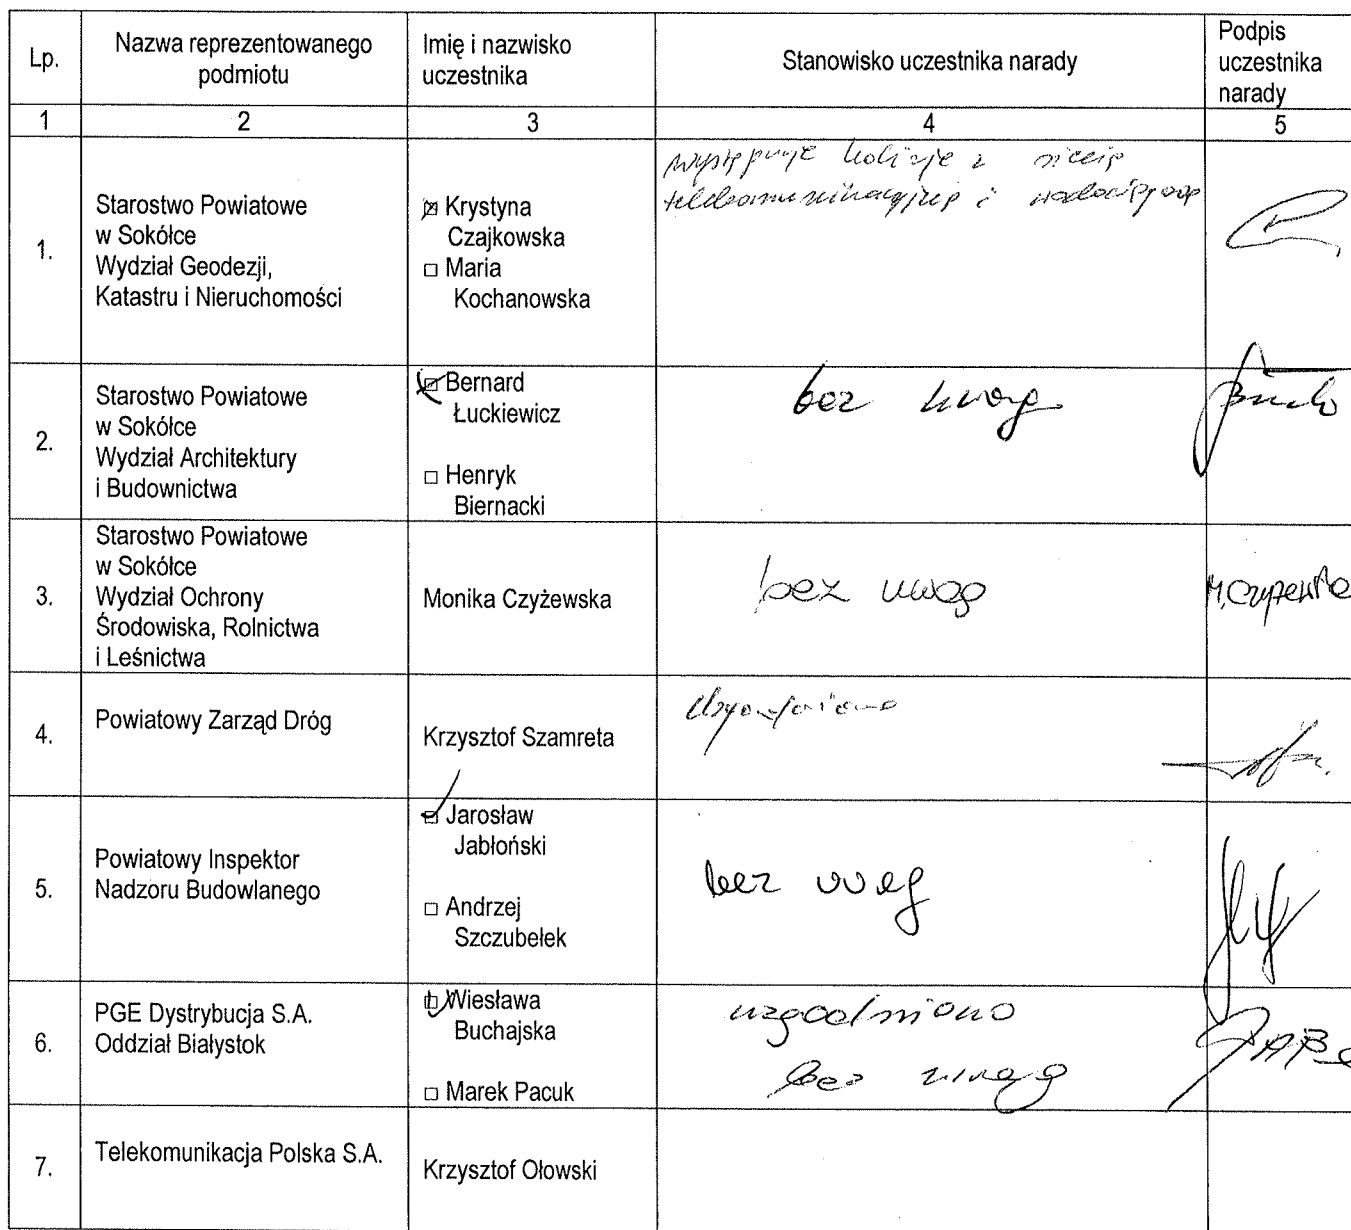 Lp.
Nazwa reprezentowanego
podmiotu
Imię i nazwisko
uczestnika
Stanowisko uczestnika narady
Podpis
uczestnika
narady
1
2
3
4
5
1.
Starostwo Powiatowe
w Sokółce
Wydział Geodezji,
Katastru i Nieruchomości
Krystyna
Czajkowska
Maria
Kochanowska
występuje kolizje z siecią
telekomunikacyjną i wodociągową
2.
Starostwo Powiatowe
w Sokółce
Wydział Architektury
i Budownictwa
Bernard
Łuckiewicz
Henryk
Biernacki
bez uwag
3.
Starostwo Powiatowe
w Sokółce
Wydział Ochrony
Środowiska, Rolnictwa
i Leśnictwa
Monika Czyżewska
bez uwag
M.Czyżewska
4.
Powiatowy Zarząd Dróg
Krzysztof Szamreta
5.
Powiatowy Inspektor
Nadzoru Budowlanego
Jarosław
Jabłoński
Andrzej
Szczubełek
bez uwag
6.
PGE Dystrybucja S.A.
Oddział Białystok
Wiesława
Buchajska
Marek Pacuk
uzgodniono
bez uwag
7.
Telekomunikacja Polska S.A.
Krzysztof Ołowski